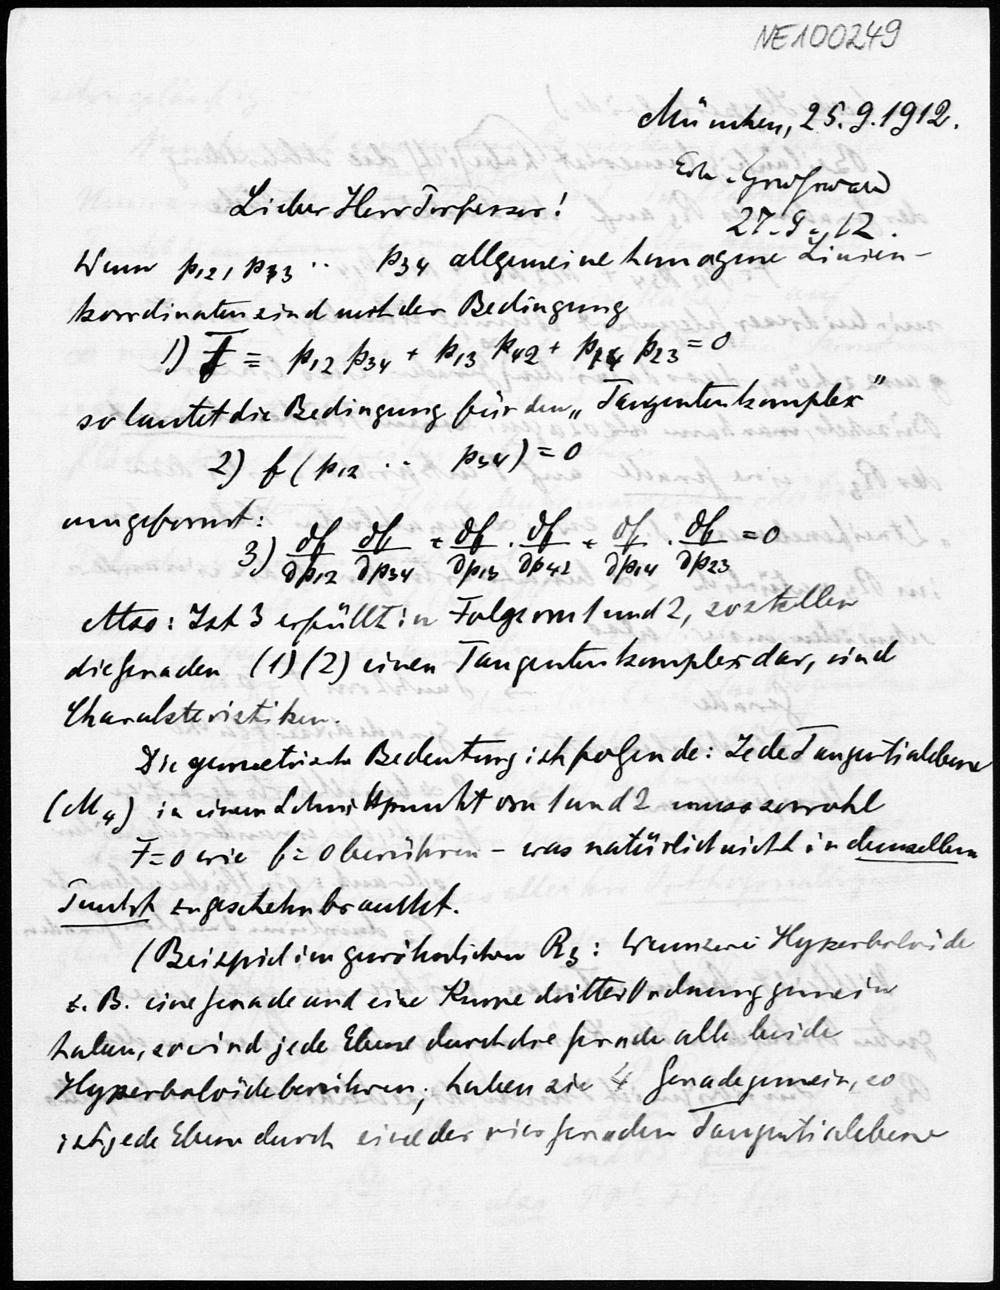 NE100249
München, 25.9.1912.
27.9.12.
Lieber Herr Professor!
Wenn p12, p13 .. p34 allgemeine homogene Linien-
koordinaten sind mit der Bedingung
1) F ≡ p12 p34 + p13 p42 + p14 p23 = 0
so lautet die Bedingung für den „Tangentenkomplex"
2) f (p12 .. p34) = 0
umgeformt:
3) ∂f/∂p12 ∂f/∂p34 + ∂f/∂p13 · ∂f/∂p42 + ∂f/∂p14 · ∂f/∂p23 = 0
Also: Ist 3 erfüllt in Folge von 1 und 2, so stellen
die Geraden (1) (2) einen Tangentenkomplex dar, sind
Charakteristiken.
Die geometrische Bedeutung ist folgende: Jede Tangentialebene
(M4) in einem Schnittpunkt von 1 und 2 muss sowohl
F=0 wie f=0 berühren – was natürlich nicht in demselben
Punkt zu geschehn braucht.
(Beispiel im gewöhnlichen R3: Wenn zwei Hyperboloide
z. B. eine Gerade und eine Kurve dritter Ordnung gemein
haben, so wird jede Ebene durch die Gerade alle beide
Hyperboloide berühren; haben sie 4 Gerade gemein, so
ist jede Ebene durch eine der vier Geraden Tangentialebene